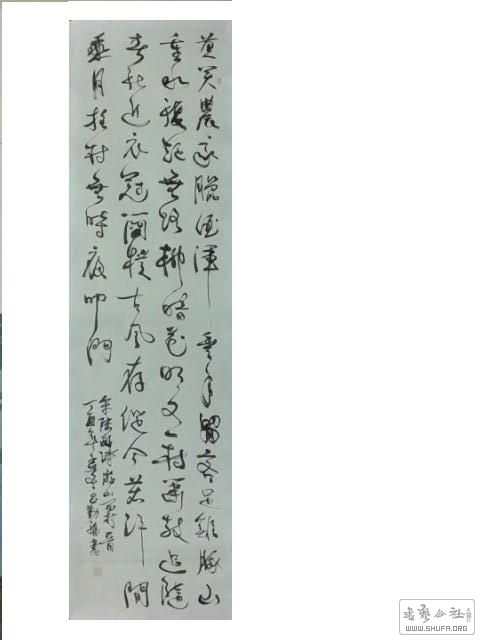 莫笑農家臘酒渾豐年留客足雞豚山
重水複疑無路柳暗花明又一村簫鼓追隨
春社近衣冠簡樸古風存從今若許閒
乘月拄杖無時夜叩門
陸游詩游山西村
丁酉年書
書藝公社
WWW.SHUFA.ORG